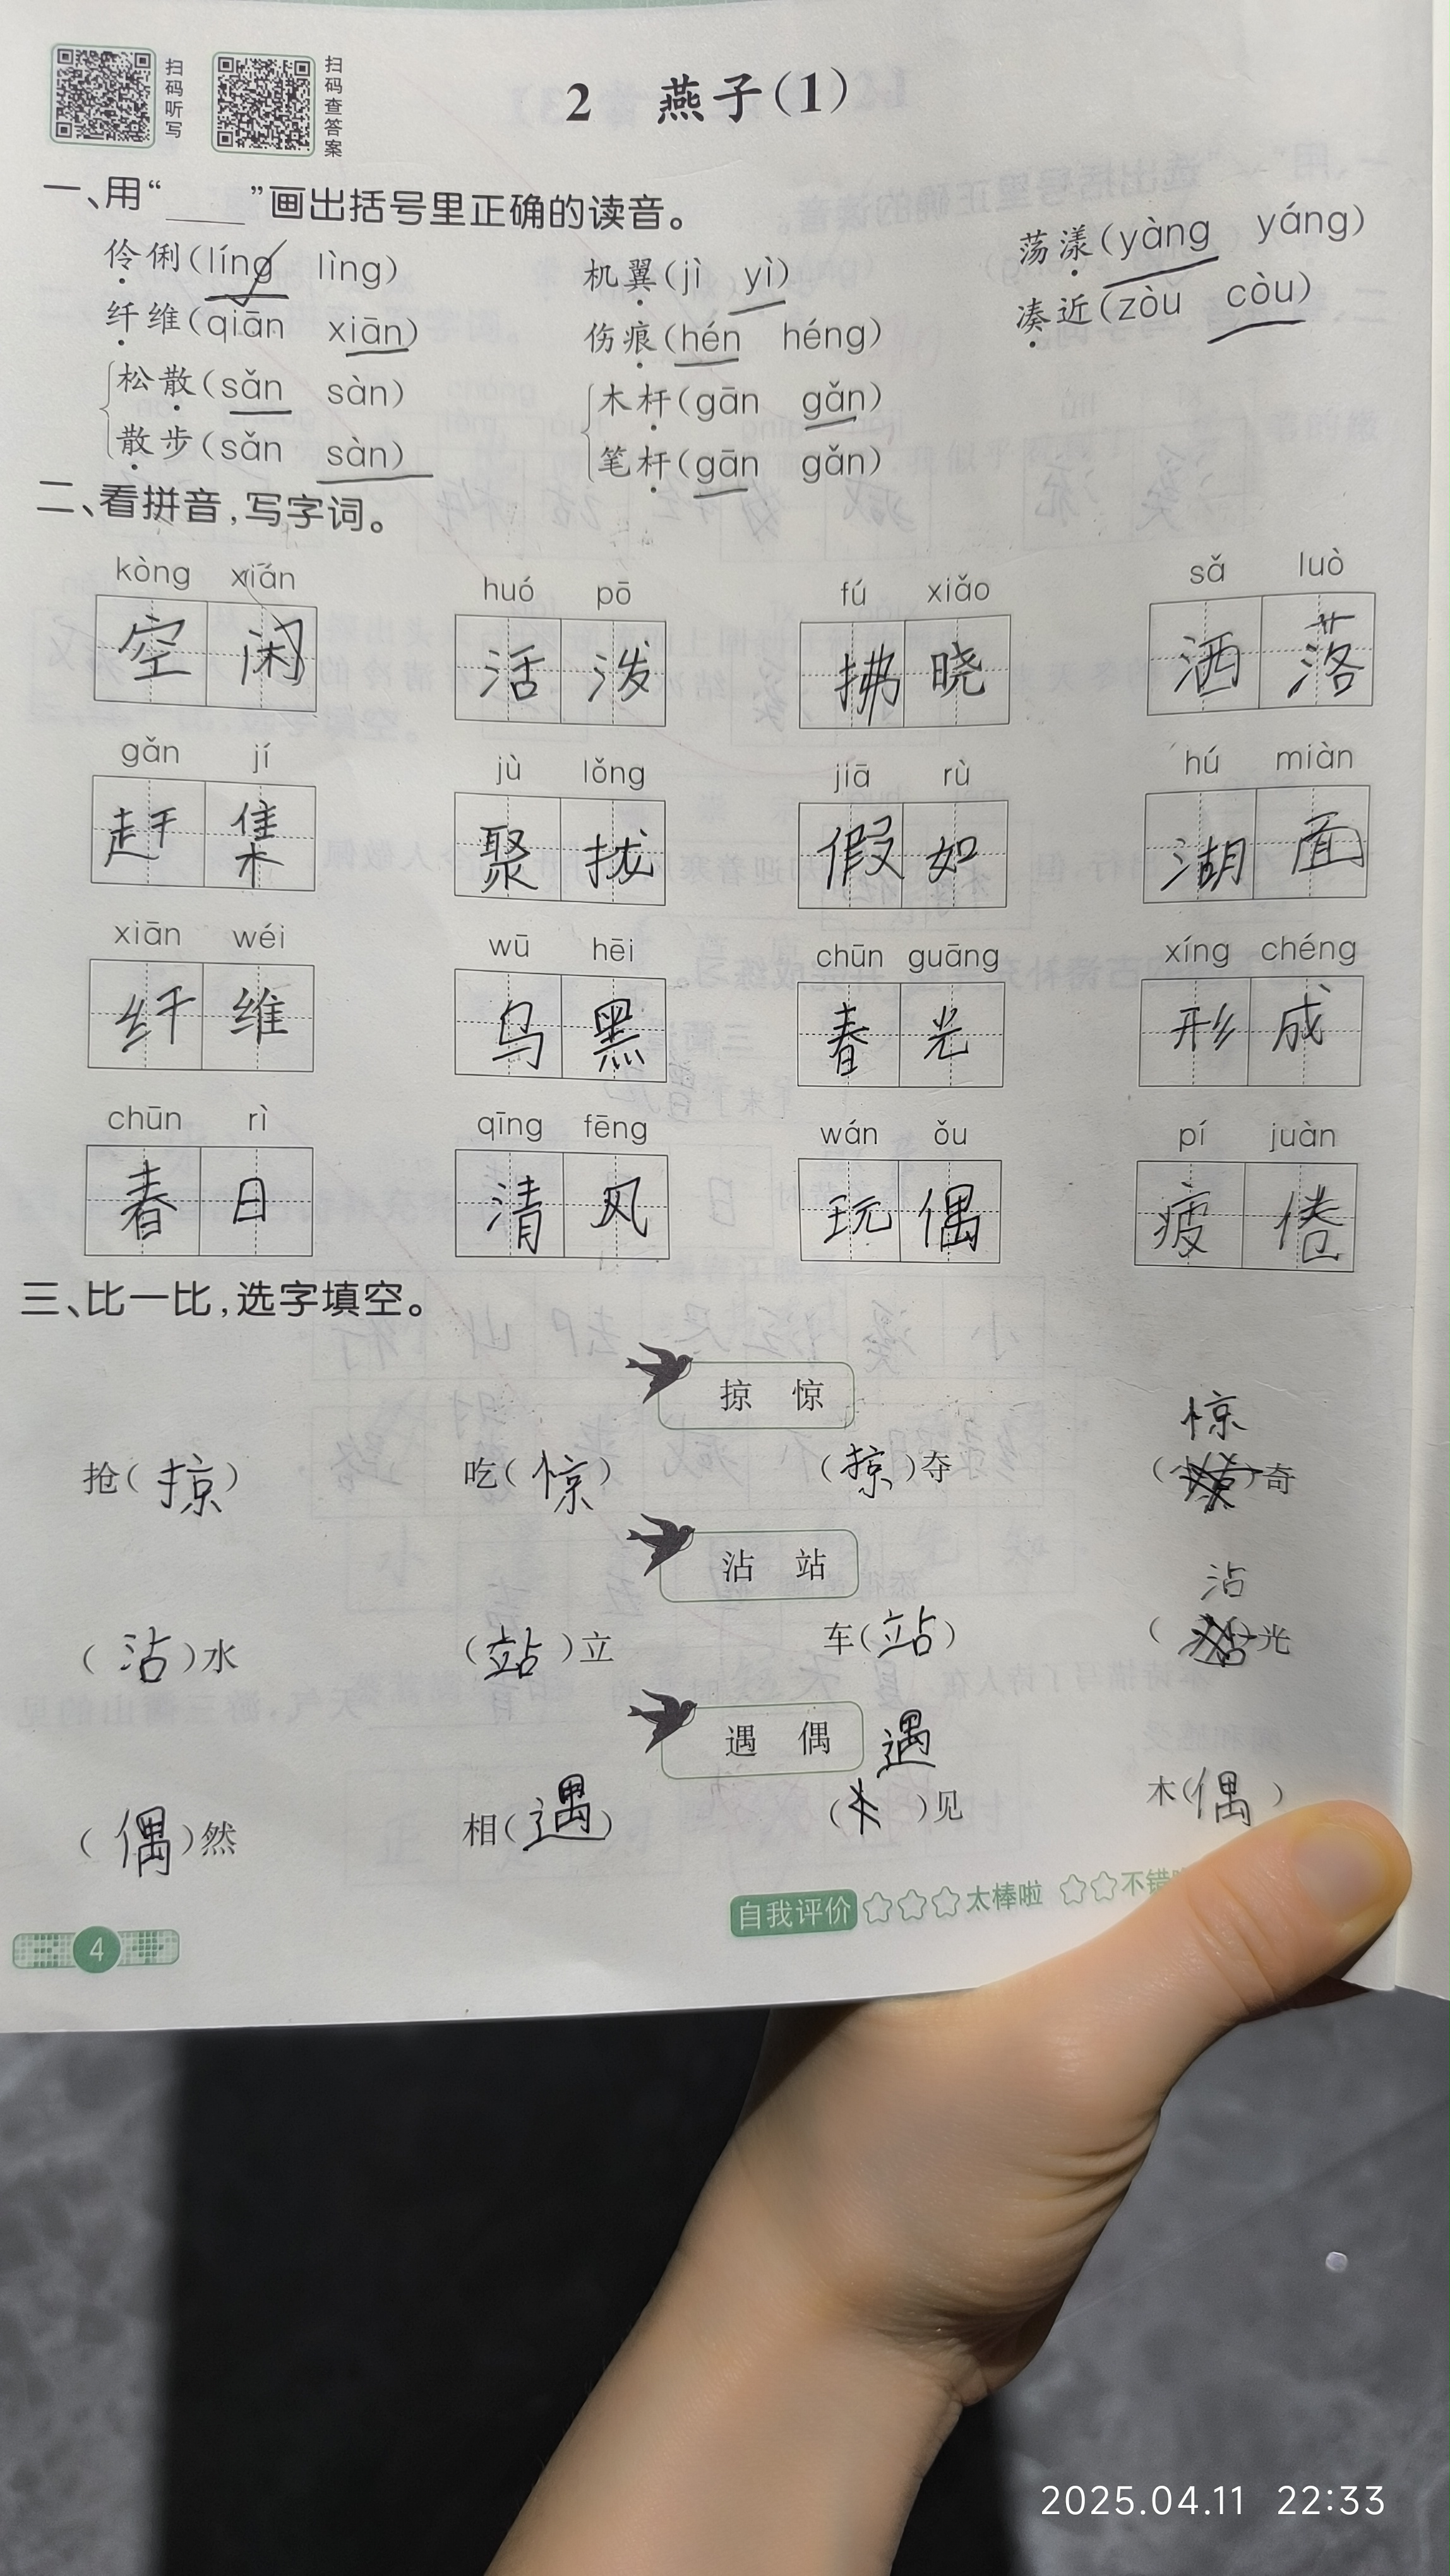 扫码听写
扫码查答案
2 燕子(1)
一、用“____”画出括号里正确的读音。
伶俐(líng lìng) 机翼(jì yì) 荡漾(yàng yáng)
纤维(qiān xiān) 伤痕(hén héng) 凑近(zòu còu)
松散(sǎn sàn) 木杆(gān gǎn)
散步(sǎn sàn) 笔杆(gān gǎn)
二、看拼音,写字词。
kòng xián huó pō fú xiǎo sǎ luò
空闲 活泼 拂晓 洒落
gǎn jí jù lǒng jiā rù hú miàn
赶集 聚拢 假如 湖面
xiān wéi wū hēi chūn guāng xíng chéng
纤维 乌黑 春光 形成
chūn rì qīng fēng wán ǒu pí juàn
春日 清风 玩偶 疲倦
三、比一比,选字填空。
掠 惊
惊
抢(掠) 吃(惊) (掠)夺 ( )奇
沾 站
沾
(沾)水 (站)立 车(站) ( )光
遇 偶
遇
(偶)然 相(遇) ( )见 木(偶)
自我评价 ☆☆☆太棒啦 ☆☆不错
4
2025.04.11 22:33